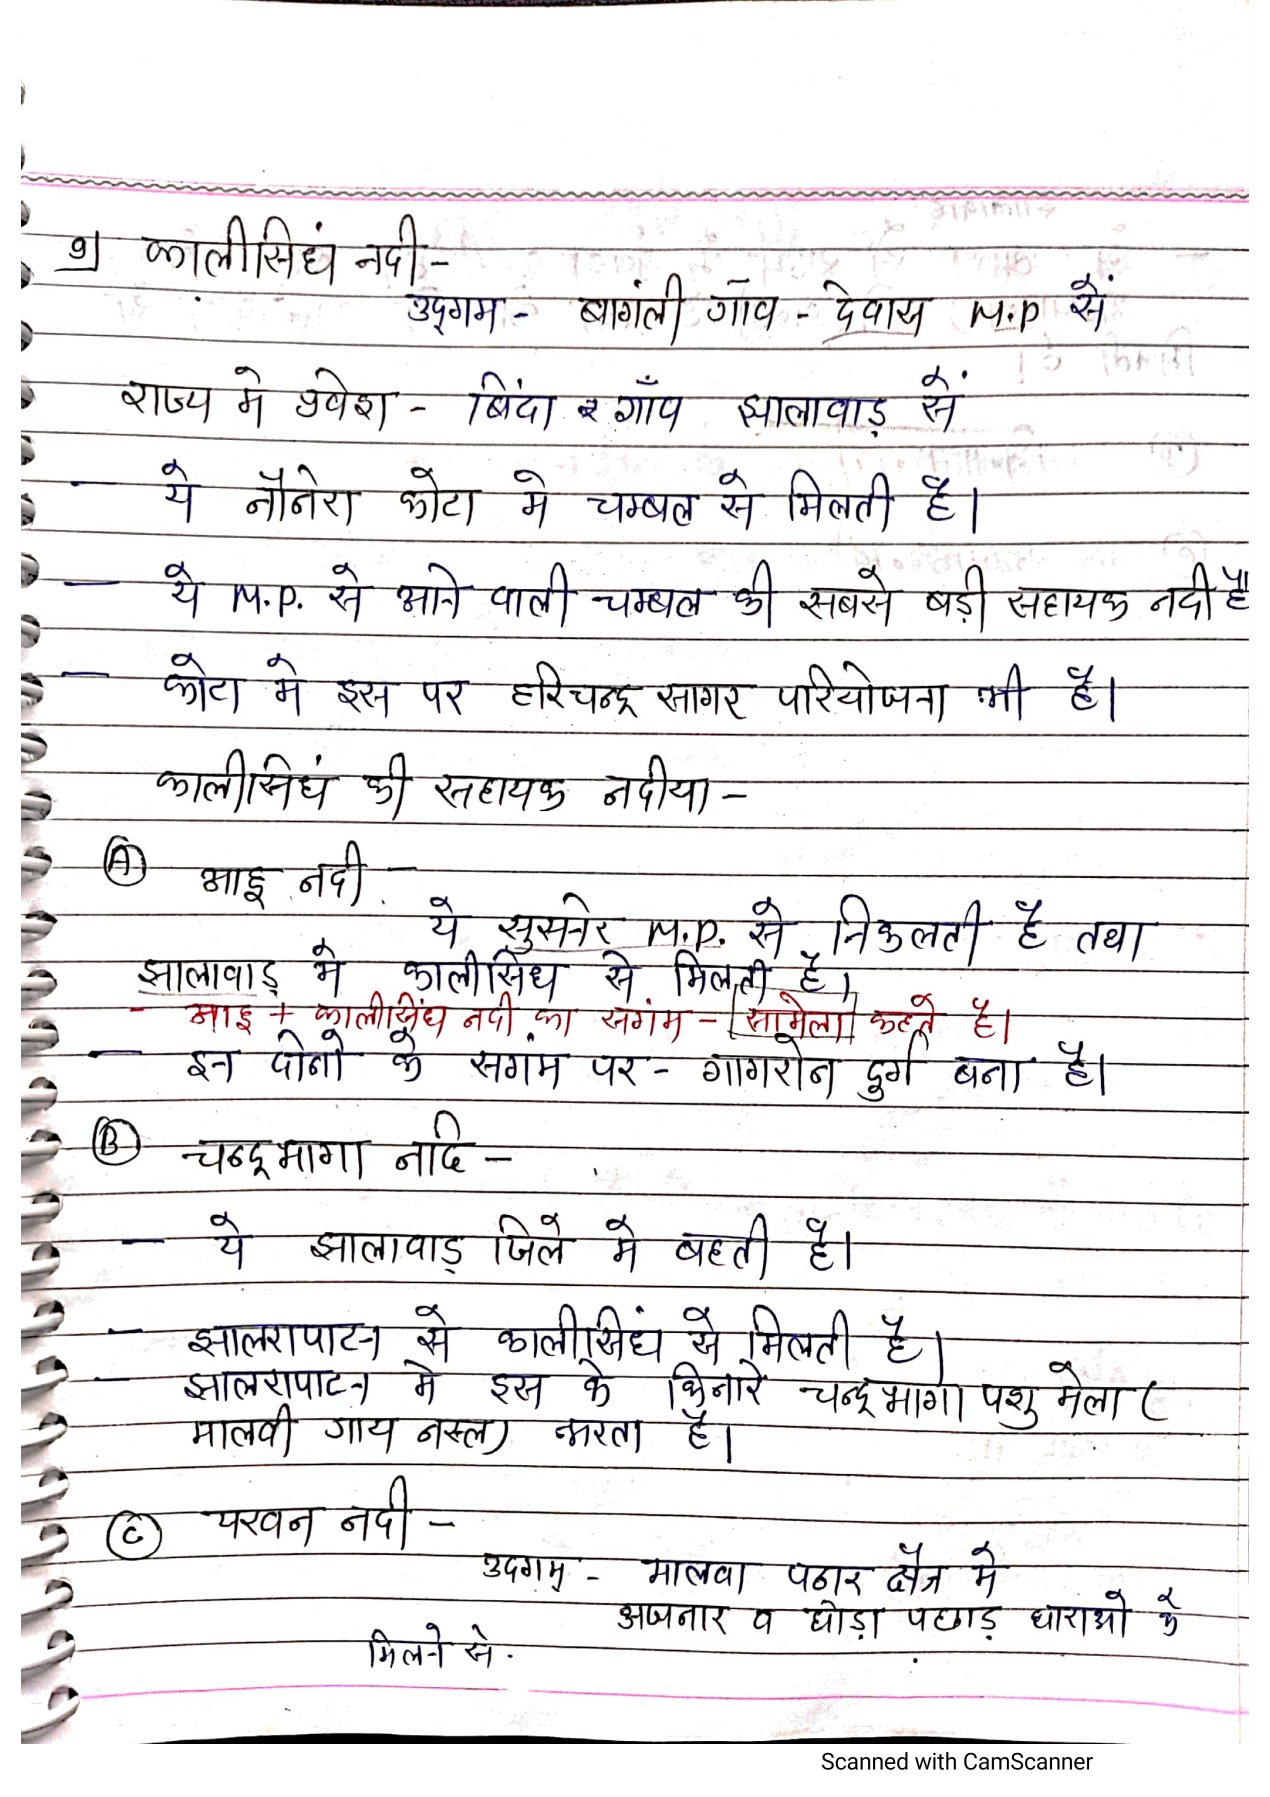 9) कालीसिधं नदी -
उद्‌गम - बागंली गाँव - देवास M.P सें
राज्य मे प्रवेश - बिंदा २ गाँव झालावाड़ सें
- ये नौनेरा कोटा मे चम्बल से मिलती है।
- ये M.P. से आने वाली चम्बल की सबसे बड़ी सहायक नदी है
- कोटा मे इस पर हरिचन्द्र सागर परियोजना भी है।
कालीसिधं की सहायक नदीया -
(A) आहू नदी -
ये सुसनेर M.P. से निकलती है तथा
झालावाड़ मे कालीसिंध से मिलती है।
- आहू + कालीसिंध नदी का सगंम - सामेला कहते है।
- इन दोनो के सगंम पर - गागरोन दुर्ग बना है।
(B) चन्द्रभागा नदि -
- ये झालावाड़ जिले मे बहती है।
- झालरापाटन से कालीसिधं से मिलती है।
- झालरापाटन मे इस के किनारे चन्द्रभागा पशु मेला (
मालवी गाय नस्ल) भरता है।
(C) परवन नदी -
उदगम - मालवा पठार क्षैत्र मे
अजनार व घोड़ा पछाड़ धाराओ के
मिलने से.
Scanned with CamScanner